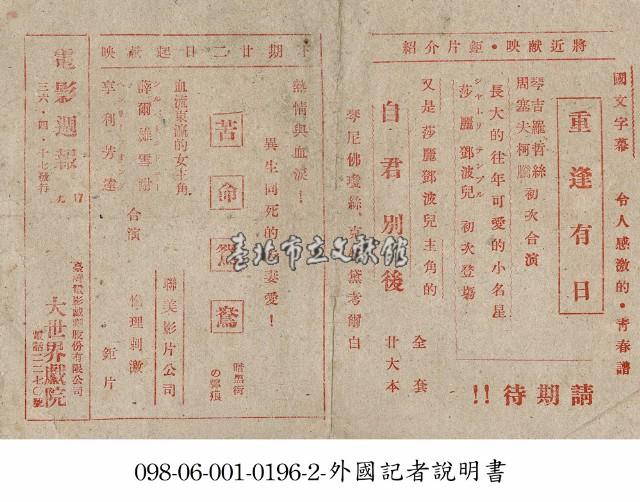 將近献映・鉅片介紹
國文字幕 令人感激的・青春譜
重逢有日
琴吉羅哲絲
周塞夫柯鵬 初次合演
長大的往年可愛的小名星
シャーリ テンプル
莎麗 鄧波兒 初次登場
又是莎麗鄧波兒主角的
自君別後
全套
廿大本
琴尼佛瓊絲
考爾白
請期待!!
期廿二日起献映
熱情與血淚!
異生同死的
妻愛!
苦命鴛鴦
暗黑街
の彈痕
血流東瀛的女主角
薛爾維雪耐
亨利方達
合演
倫理刺激
鉅片
聯美影片公司
電影週報
17
三六・四・十七發行
臺灣電影戲劇股份有限公司
大世界戲院
電話二二七〇號
臺北市立文獻館
098-06-001-0196-2-外國記者說明書